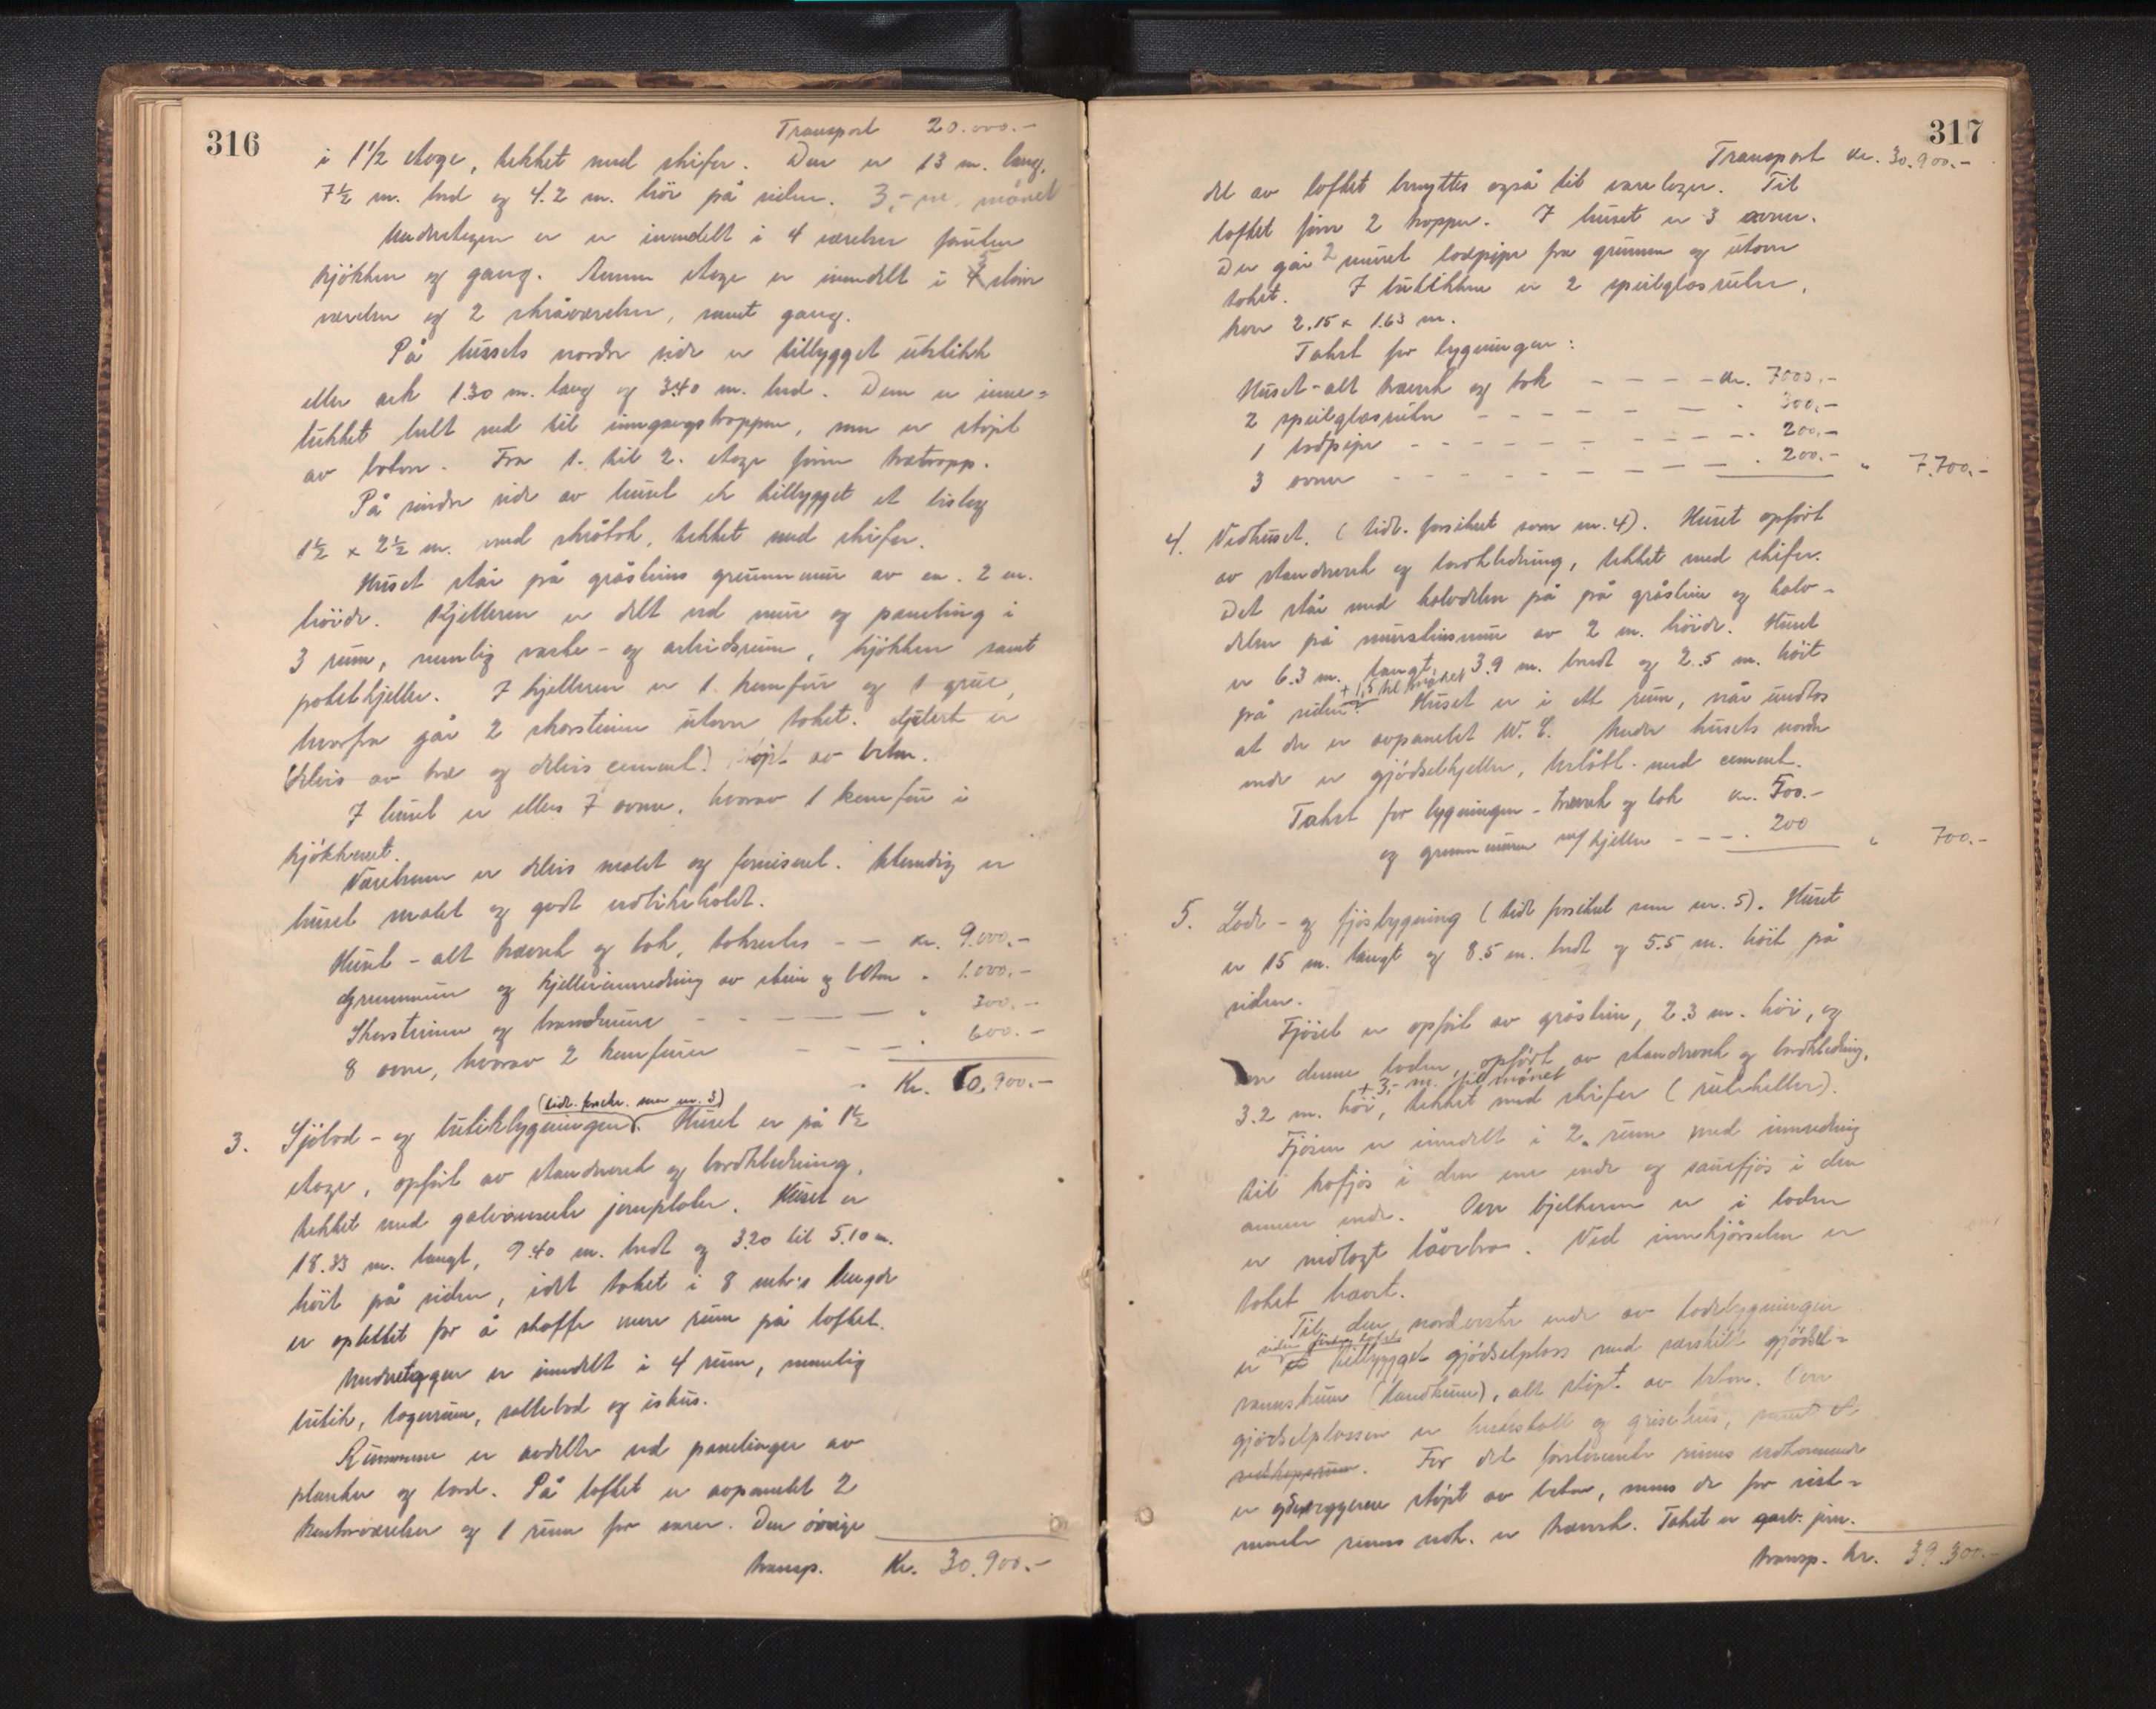 316
Transport 20.000.-
i 1 1/2 etage, tekket med skifer. Den er 13 m. lang,
7 1/2 m. bred og 4.2 m. høi på siden. 3,- m. mønet
Underetagen er er innedelt i 4 værelser foruten
kjøkken og gang. Annen etage er inndelt i 3 store
værelser og 2 skråværelser, samt gang.
På husets nordre side er tilbygget utstikk
eller ark 1.30 m. lang og 3.40 m. bred. Den er inne=
lukket helt ned til inngangstroppen, som er støpt
av beton. Fra 1. til 2. etage fører trætropp.
På søndre side av huset er tilbygget et bislag
1 1/2 x 2 1/2 m. med skråtak, tekket med skifer.
Huset står på gråsteins grunnmur av ca. 2 m.
høide. Kjelleren er delt ved mur og paneling i
3 rum, nemlig vaske- og arbeidsrum, kjøkken samt
potetkjeller. I kjelleren er 1 komfur og 1 grue,
hvorfra går 2 skorsteiner utover taket. Gulvet er
delvis av træ og delvis cement. støpt av beton.
I huset er ellers 7 ovner, hvorav 1 komfur i
kjøkkenet.
Værelsene er delvis malet og fernisert. Utvendig er
huset malet og godt vedlikeholdt.
Huset - alt træverk og tak, takseres - - kr. 9.000.-
Grunnmur og kjellerinnredning av stein og beton " 1.000.-
Skorsteiner og brandmure - - - - - " 300.-
8 ovne, hvorav 2 komfurer - - - " 600.-
" Kr. 10.900.-
(tidl. forsikr. som nr. 3)
3. Sjøbod- og butikbygningen. Huset er på 1 1/2
etage, opført av standverk og bordkledning,
tekket med galvaniserte jernplater. Huset er
18.33 m. langt, 9.40 m. bredt og 3.20 til 5.10 m.
høit på siden, idet taket i 8 mtr's lengde
er opløftet for å skaffe mere rum på loftet.
Underetagen er inndelt i 4 rum, nemlig
butik, lagerrum, saltebod og ishus.
Rummene er avdelte ved panelinger av
planker og bord. På loftet er avpanelet 2
kontorværelser og 1 rum for varer. Den øvrige
transp. Kr. 30.900.-
317
Transport kr. 30.900.-
del av loftet benyttes også til varelager. Til
loftet fører 2 tropper. I huset er 3 ovner.
Der går 2 muret lodpipe fra grunnen og utover
taket. I butikken er 2 speilglasruter,
hver 2.15 x 1.63 m.
Takst for bygningen:
Huset - alt træverk og tak - - - - kr. 7000,-
2 speilglasruter - - - - - - - " 300,-
1 lodpipe - - - - - - - - - " 200,-
3 ovner - - - - - - - - - " 200.- " 7.700.-
4. Vedhuset. (tidl. forsikret som nr. 4). Huset opført
av standverk og bordkledning, tekket med skifer.
Det står med halvdelen på på gråstein og halv-
delen på mursteinsmur av 2 m. høide. Huset
er 6.3 m. langt, 3.9 m. bredt og 2.5 m. høit
+ 1,5 til mønet
på siden. Huset er i ett rum, når undtas
at der er avpanelet W.C. Under husets nordre
ende er gjødselkjeller, belagt med cement.
Takst for bygningen - træverk og tak kr. 500.-
og grunnmuren m/ kjeller - - - " 200 " 700.-
5. Lade- og fjøsbygning (tidl. forsikret som nr. 5). Huset
er 15 m. langt og 8.5 m. bredt og 5.5 m. høit på
siden.
Fjøset er opført av gråstein, 2.3 m. høi, og
over denne laden, opført av standverk og bordkledning,
+ 3,- m. til mønet
3.2 m. høi, tekket med skifer (rutheller).
Fjøsen er inndelt i 2 rum med innredning
til kofjøs i den ene ende og sauefjøs i den
annen ende. Over bjelkerne er i laden
er nedlagt låvebro. Ved innkjørselen er
taket hævet.
Til den norderste ende av ladebygningen
siden
er et tilbygget gjødselplass med særskilt gjødsel=
vannskum (landkum), alt støpt av beton. Over
gjødselplassen er hestestall og grisehus, samt et
redskapsrum. For det førstnevnte rums vedkommende
er ydreveggene støpt av beton, mens de for sist=
nevnte rums vedk. er træverk. Taket er galv. jern.
transp. kr. 39.300.-